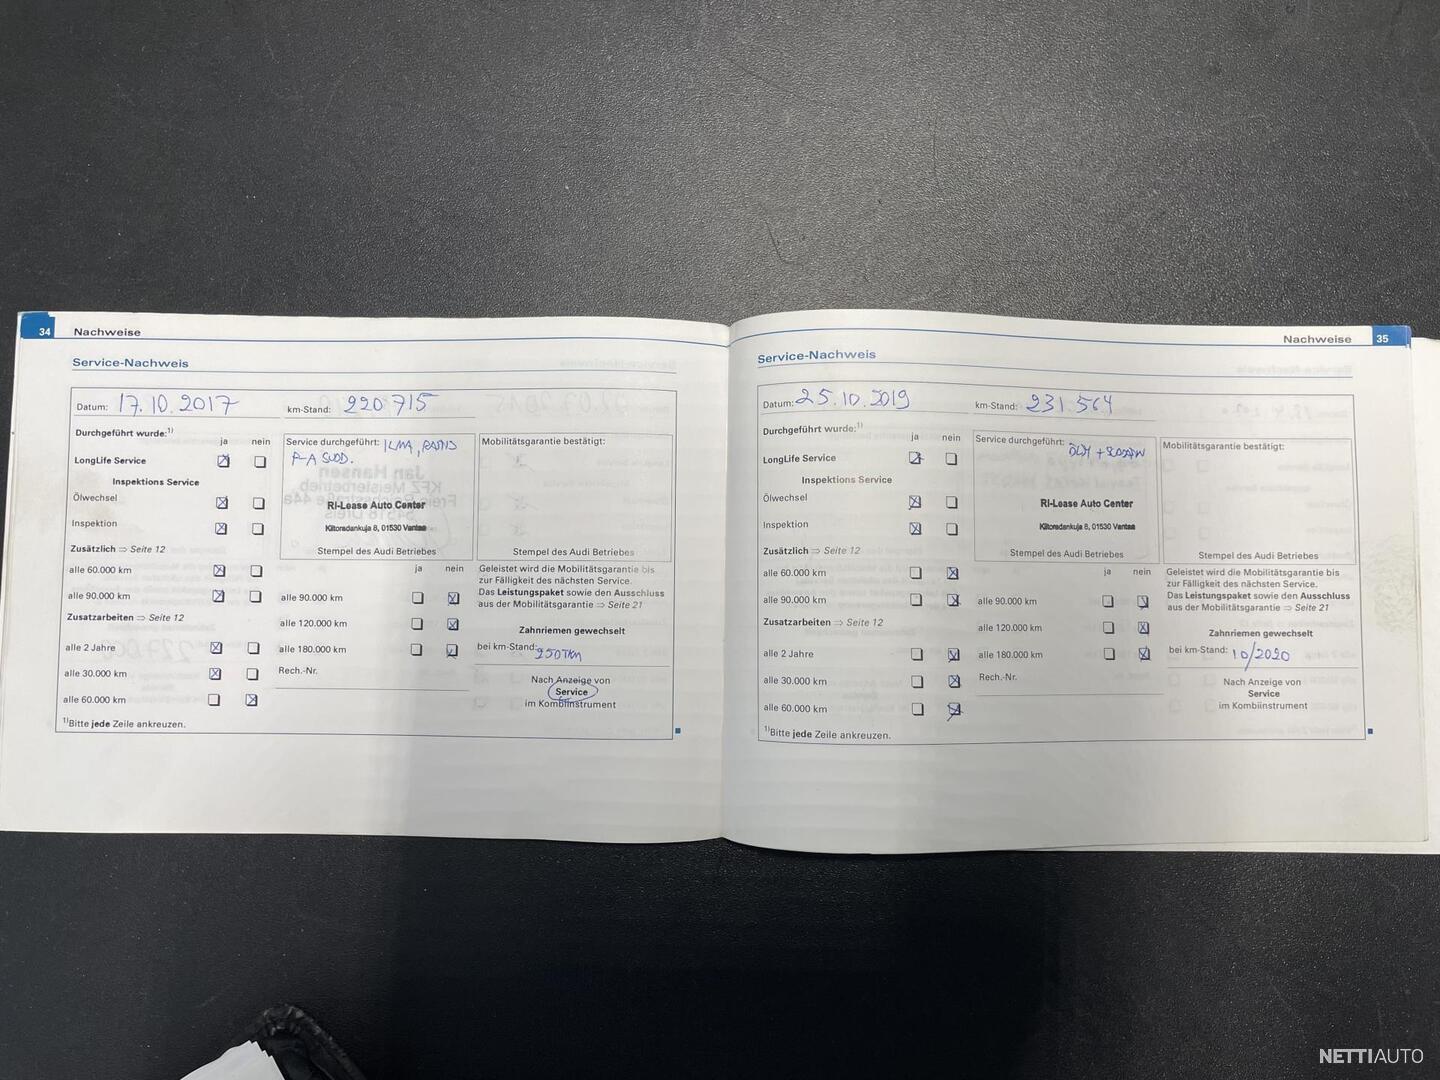 34 Nachweise
Service-Nachweis
Datum: 17.10.2017 km-Stand: 220 715
Durchgeführt wurde:1)
ja nein
LongLife Service
Inspektions Service
Ölwechsel
Inspektion
Zusätzlich ⇒ Seite 12
alle 60.000 km
alle 90.000 km
Zusatzarbeiten ⇒ Seite 12
alle 2 Jahre
alle 30.000 km
alle 60.000 km
1)Bitte jede Zeile ankreuzen.
Service durchgeführt: ILMA,
P-A SUOD.
RI-Lease Auto Center
Kiitoradankuja 8, 01530 Vantaa
Stempel des Audi Betriebes
ja nein
alle 90.000 km
alle 120.000 km
alle 180.000 km
Rech.-Nr.
Mobilitätsgarantie bestätigt:
Stempel des Audi Betriebes
Geleistet wird die Mobilitätsgarantie bis
zur Fälligkeit des nächsten Service.
Das Leistungspaket sowie den Ausschluss
aus der Mobilitätsgarantie ⇒ Seite 21
Zahnriemen gewechselt
bei km-Stand: 250TKM
Nach Anzeige von
Service
im Kombiinstrument
Nachweise 35
Service-Nachweis
Datum: 25.10.2019 km-Stand: 231.564
Durchgeführt wurde:1)
ja nein
LongLife Service
Inspektions Service
Ölwechsel
Inspektion
Zusätzlich ⇒ Seite 12
alle 60.000 km
alle 90.000 km
Zusatzarbeiten ⇒ Seite 12
alle 2 Jahre
alle 30.000 km
alle 60.000 km
1)Bitte jede Zeile ankreuzen.
Service durchgeführt:
RI-Lease Auto Center
Kiitoradankuja 8, 01530 Vantaa
Stempel des Audi Betriebes
ja nein
alle 90.000 km
alle 120.000 km
alle 180.000 km
Rech.-Nr.
Mobilitätsgarantie bestätigt:
Stempel des Audi Betriebes
Geleistet wird die Mobilitätsgarantie bis
zur Fälligkeit des nächsten Service.
Das Leistungspaket sowie den Ausschluss
aus der Mobilitätsgarantie ⇒ Seite 21
Zahnriemen gewechselt
bei km-Stand: 10/2020
Nach Anzeige von
Service
im Kombiinstrument
NETTIAUTO